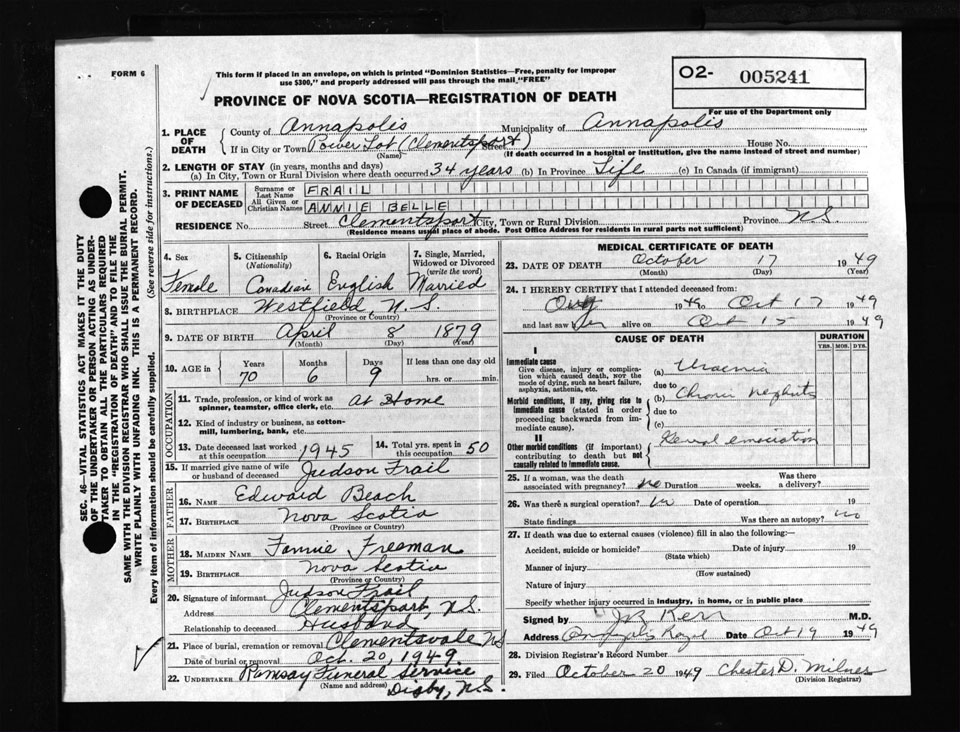 FORM 6
This form if placed in an envelope, on which is printed "Dominion Statistics—Free, penalty for improper
use $300," and properly addressed will pass through the mail "FREE"
O2- 005241
For use of the Department only
PROVINCE OF NOVA SCOTIA—REGISTRATION OF DEATH
1. PLACE OF DEATH
County of Annapolis Municipality of Annapolis
If in City or Town Power Lot (Clementsport) Street House No.
(Name) (If death occurred in a hospital or institution, give the name instead of street and number)
2. LENGTH OF STAY (in years, months and days)
(a) In City, Town or Rural Division where death occurred 34 years (b) In Province Life (c) In Canada (if immigrant)
3. PRINT NAME OF DECEASED
Surname or Last Name FRAIL
All Given or Christian Names ANNIE BELLE
RESIDENCE No. Street Clementsport City, Town or Rural Division Province N.S.
(Residence means usual place of abode. Post Office Address for residents in rural parts not sufficient)
4. Sex Female
5. Citizenship (Nationality) Canadian
6. Racial Origin English
7. Single, Married, Widowed or Divorced (write the word) Married
8. BIRTHPLACE Westfield, N.S.
(Province or Country)
9. DATE OF BIRTH April 8 1879
(Month) (Day) (Year)
10. AGE in Years Months Days If less than one day old
70 6 9 hrs. or min.
OCCUPATION
11. Trade, profession, or kind of work as spinner, teamster, office clerk, etc. At Home
12. Kind of industry or business, as cotton-mill, lumbering, bank, etc.
13. Date deceased last worked at this occupation 1945
14. Total yrs. spent in this occupation 50
15. If married give name of wife or husband of deceased Judson Frail
FATHER
16. NAME Edward Beach
17. BIRTHPLACE Nova Scotia
(Province or Country)
MOTHER
18. MAIDEN NAME Fannie Freeman
19. BIRTHPLACE Nova Scotia
(Province or Country)
20. Signature of informant Judson Frail
Address Clementsport, N.S.
Relationship to deceased Husband
21. Place of burial, cremation or removal Clementsvale NS
Date of burial or removal Oct. 20, 1949
22. UNDERTAKER Ramsay Funeral Service
(Name and address) Digby, N.S.
MEDICAL CERTIFICATE OF DEATH
23. DATE OF DEATH October 17 1949
(Month) (Day) (Year)
24. I HEREBY CERTIFY that I attended deceased from:
1949 to Oct 17 1949
and last saw her alive on Oct 15 1949
CAUSE OF DEATH DURATION
YRS. MOS. DYS.
I
Immediate cause
Give disease, injury or complication which caused death, NOT the mode of dying, such as heart failure, asphyxia, asthenia, etc.
(a) Uraemia
due to
(b) Chronic nephritis
Morbid conditions, if any, giving rise to immediate cause (stated in order proceeding backwards from immediate cause).
due to
(c)
II
Other morbid conditions (if important) contributing to death but not causally related to immediate cause.
emaciation
25. If a woman, was the death associated with pregnancy? no Duration weeks. Was there a delivery?
26. Was there a surgical operation? no Date of operation 19
State findings Was there an autopsy? no
27. If death was due to external causes (violence) fill in also the following:—
Accident, suicide or homicide? Date of injury 19
(State which)
Manner of injury
(How sustained)
Nature of injury
Specify whether injury occurred in industry, in home, or in public place
Signed by Kerr M.D.
Address Annapolis Royal Date Oct 19 1949
28. Division Registrar's Record Number
29. Filed October 20 1949 Chester D. Milner
(Division Registrar)
SEC. 46—VITAL STATISTICS ACT MAKES IT THE DUTY
OF THE UNDERTAKER OR PERSON ACTING AS UNDER-
TAKER TO OBTAIN ALL THE PARTICULARS REQUIRED
IN THE "REGISTRATION OF DEATH" AND TO FILE THE
SAME WITH THE DIVISION REGISTRAR WHO SHALL ISSUE THE BURIAL PERMIT.
WRITE PLAINLY WITH UNFADING INK. THIS IS A PERMANENT RECORD.
Every item of information should be carefully supplied. (See reverse side for instructions.)